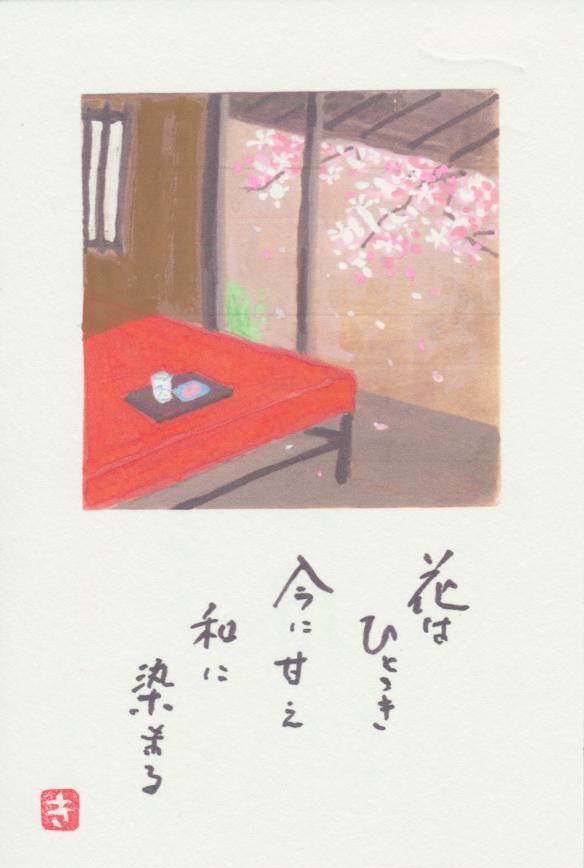 花は
ひとつき
今に甘え
和に
染まる